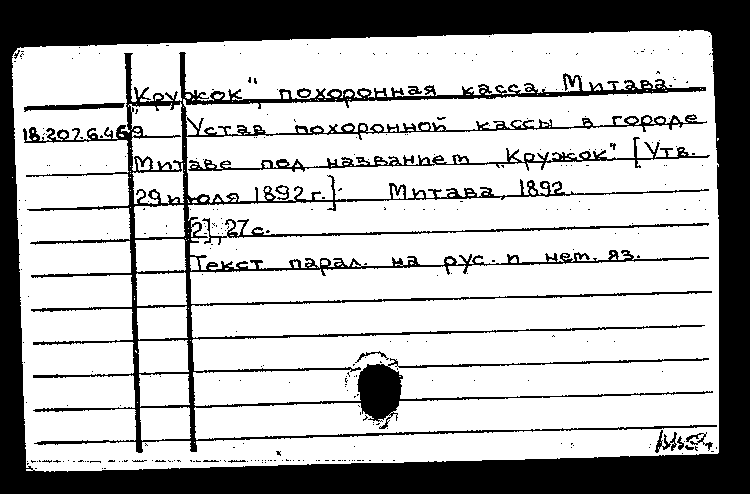 „Кружок", похоронная касса. Митава.
18.207.6.469 Устав похоронной кассы в городе
Митаве под названием „Кружок" [Утв.
29 июля 1892 г.]. Митава, 1892.
[2], 27 с.
Текст парал. на рус. и нем. яз.